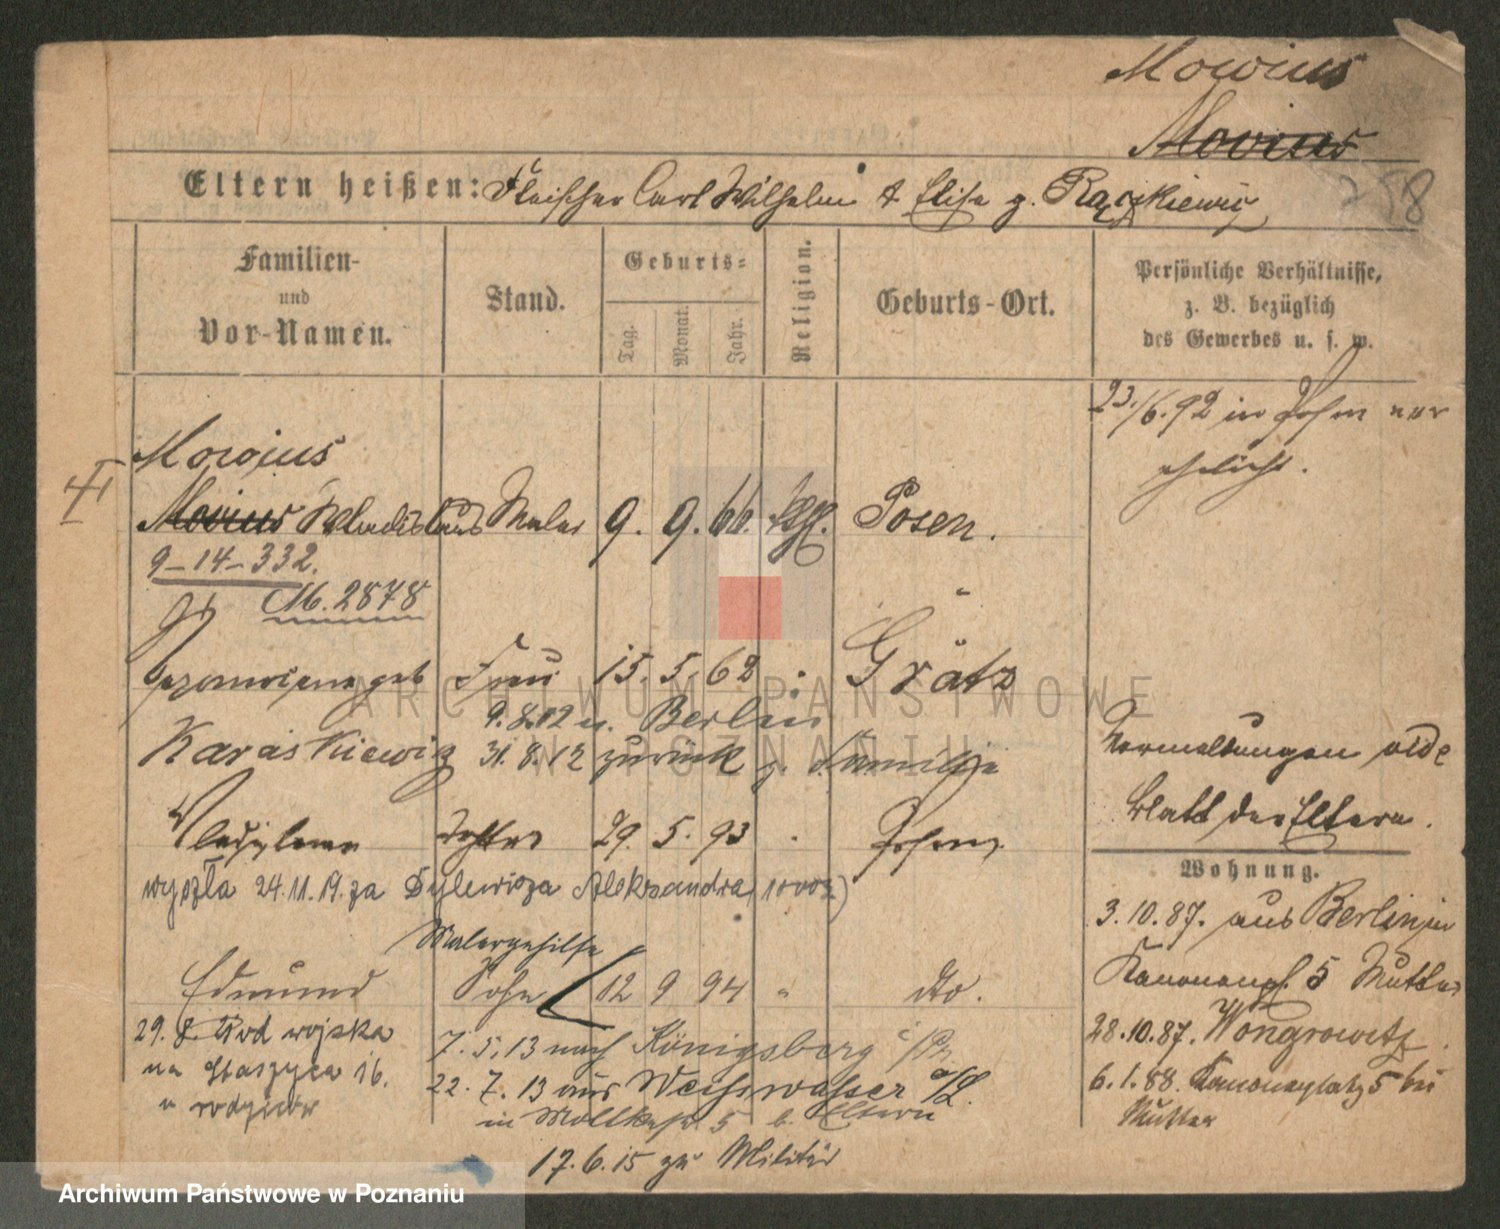 Mowius
Movius
258
Eltern heißen: Fleischer Carl Wilhelm & Elise g. Raczkiewicz
Familien-
und
Vor-Namen.
Stand.
Geburts-
Tag.
Monat.
Jahr.
Religion.
Geburts-Ort.
Persönliche Verhältnisse,
z. B. bezüglich
des Gewerbes u. s. w.
23./6.92 in Posen ver
ehelicht.
Mowius
Movius Wladislaus Maler 9. 9. 66. kath. Posen.
9-14-332.
M. 2878
geb Frau 15. 5. 62 Grätz
9.8.12 n. Berlin
Karaśkiewicz 31.8.12 zurück z. Familie
Tochter 29. 5. 93 Posen
wyszła 24.11.19. za Dylewicza Aleksandra
Malergehilfe
Edmund Sohn 12 9 94 " dto.
29. 8. od wojska
na Staszyca 16.
u rodziców
7. 5. 13 nach Königsberg i/Pr.
22. 7. 13 aus Weisswasser o/L.
in Moltkestr. 5 b. Eltern
17. 6. 15 zu Militär
Vermeldungen vide
Blatt der Eltern.
Wohnung.
3. 10. 87. aus Berlin
Kanonenpl. 5 Mutter
28. 10. 87. Wongrowitz.
6. 1. 88. Kanonenplatz 5 bei
Mutter
ARCHIWUM PAŃSTWOWE
W POZNANIU
Archiwum Państwowe w Poznaniu